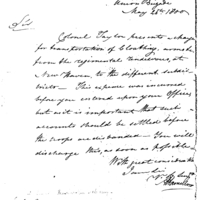 Union Brigade
May 26th 1800
Sir
Colonel Taylor presents a charge
for transportation of Cloathing, &c
from the regimental rendezvous, at
New Haven, to the different subdis-
tricts - This expence was incurred
before you entered upon your Office
but as it is important that such
accounts should be settled before
the troops are disbanded - You will
discharge this, as soon as possible
With great consideration
I am Sir